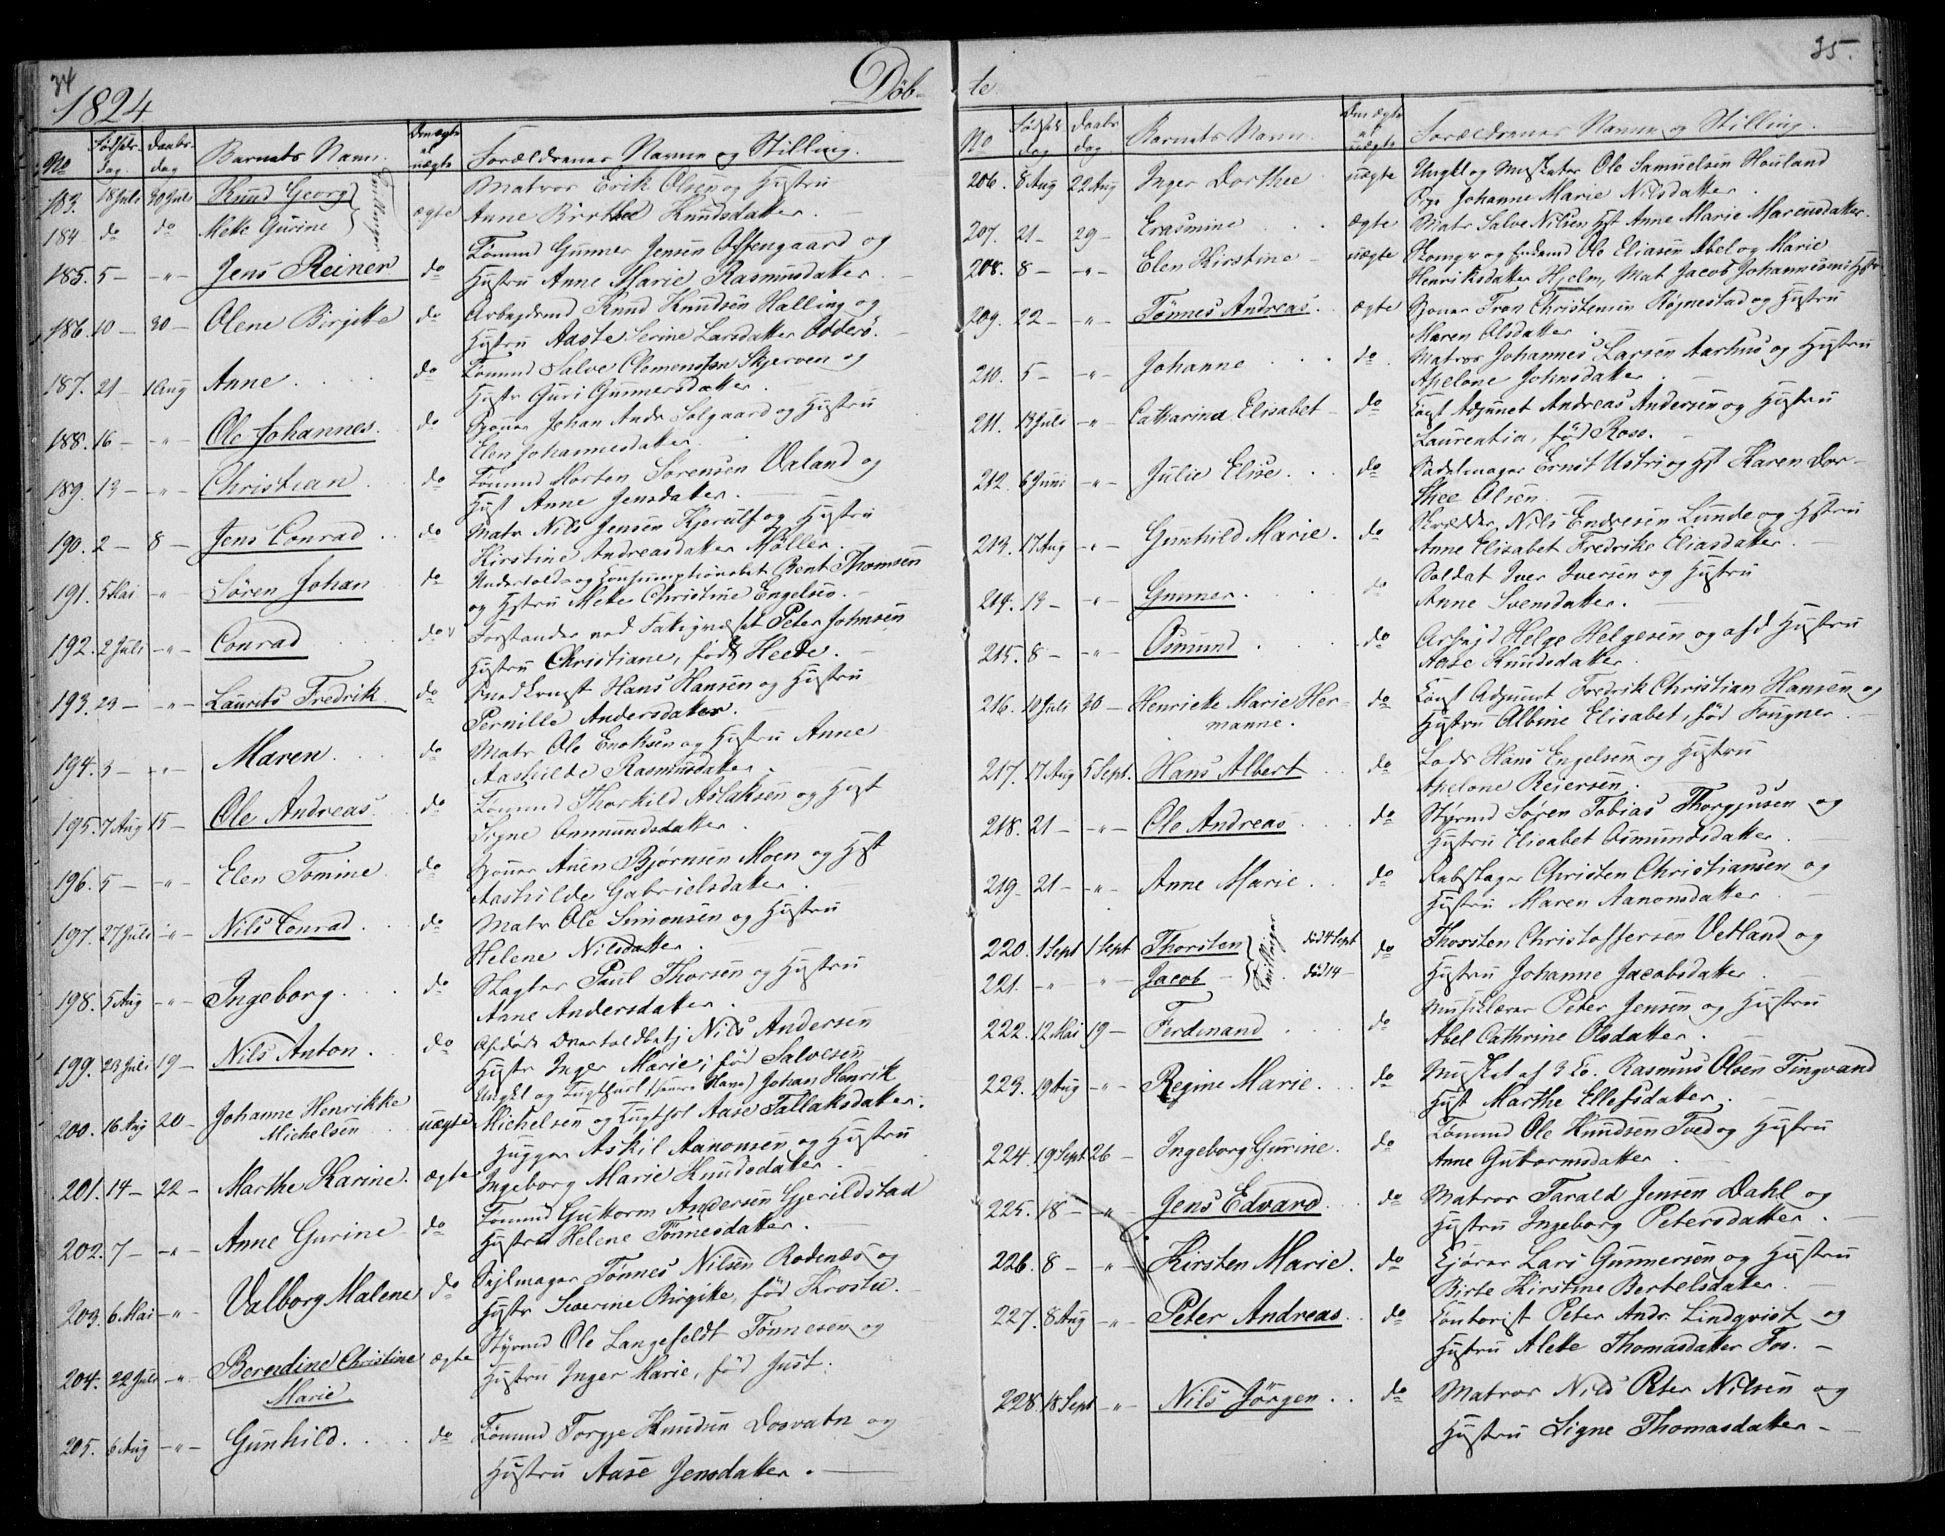 34
1824
Döb-
No
Fødsels dag.
Daabs dag
Barnets Navn.
Om ægte el uægte
Forældrenes Navne og Stilling.
183. 18 Juli 30 Juli Knud Georg Matros Erik Olsen og Hustru
Tvillinger
184 do do Mette Gurine ægte Anne Birthe Knudsdatter.
185. 5 — -"- Jens Reiner do Tømmd Gunner Jensen Østengaard og
Hustru Anne Marie Rasmusdatter.
186. 10 — 30 — Olene Birgitte do Arbejdsmd Knud Knudsen Halling og
Hustru Aaste Serine Larsdatter Odderø.
187. 21 — 1 Aug Anne do Tømmd Salve Clemensen Skjerven og
Hustr Guri Gunnersdatter.
188. 16 — -"- Ole Johannes. do Johan Andr Solgaard og Hustru
Elen Johannesdatter
189. 13 — -"- Christian do Tømmd Morten Sørensen Valand og
Hust Anne Jensdatter.
190. 2 — 8 — Jens Conrad do Matr Nils Jensen Kjerulf og Hustru
Kirstine Andreasdatter Møller.
191. 5 Mai -"- Søren Johan do Undertolds og Consumptionsbet Bent Thomsen
og Hstru Mette Christine Engelsen.
192. 2 Juli -"- Conrad do Forstander ved Peter Johnsen
Hustru Christiane, født Heede.
193. 23 — -"- Laurits Fredrik do Snedksvst Hans Hansen og Hustru
Pernille Andersdatter.
194. 5 — -"- Maren do Matr Ole Enoksen og Hustru Anne
Aashilde Rasmusdatter.
195. 7 Aug 15 — Ole Andreas. do Tømmd Thorkild Aslaksen og Hust
Signe Anmundsdatter.
196. 5 — -"- Elen Tomine. do Auen Bjørnsen Moen og Hst
Aashilde Gabrielsdatter.
197. 27 Juli -"- Nils Conrad do Matr Ole Simonsen og Hustru
Helene Nilsdatter.
198. 5 Aug -"- Ingeborg. do Slagter Paul Thorsen og Hustru
Anne Andersdatter.
199. 23 Juli 19 — Nils Anton. do Afdøde Overtoldbetj Nils Andersen
Hustr Inger Marie, fød Salvesen
200. 16 Aug 20 — Johanne Henrikke Michelsen uægte Ungkl og Johan Henrik
Michelsen og Aase Tallaksdatter.
201. 14 — 22 — Marthe Karine. ægte Hugger Askil Aanonsen og Hustru
Ingeborg Marie Knudsdatter.
202. 7 — -"- Anne Gurine do Tømmd Guttorm Andersen Gjerildstad
Hustru Helene Tønnesdatter.
203. 6 Mai -"- Valborg Malene do Sejlmager Tønnes Nilsen Rodenæs og
Hustr Severine Birgitte, fød
204. 22 Juli -"- Berendine Christine Marie ægte Styrmd Ole Langefeldt Tønnesen og
Hustru Inger Marie, fød Just.
205. 6 Aug -"- Gunhild. do Tømmd Torgje Knudsen Dosvatn og
Hustru Aase Jensdatter.
35.
te.
No
Fødsels dag
Daabs dag
Barnets Navn.
Om ægte el uægte
Forældrenes Navne og Stilling.
206. 8 Aug 22 Aug Inger Dorthee uægte Ungkl og Musketer Ole Samuelsen Houland
Pge Johanne Marie Nilsdatter.
207. 21 — 29 — Erasmine ægte Matr Salve Nilsen Hst Anne Marie Marcusdatter.
208. 8 — -"- Elen Kirstine uægte Ole Eliasen Abel og Marie
Henriksdatter Hjelm, Mat Jacob Johannesens Hstr
209. 22 — -"- Tønnes Andreas. ægte Christensen Røjnestad og Hustru
Maren Olsdatter.
210. 5 — -"- Johanne do. Matros Johannes Larsen Aarhus og Hustru
Apelone Johnsdatter
211. 13 Juli -"- Catharina Elisabet do Const Adjunct Andreas Andersen og Hustru
Laurentia, fød Rose.
212. 6 Juni -"- Julie Elise do Sadelmager Ernst Ustri og Hst Karen Dor-
thee Olsen
213. 17 Aug -"- Gunhild Marie. do Skrædder Nils Endresen Lunde og Hstru
Anne Elisabet Fredrike Eliasdatter.
214. 13 — -"- Gunner. do Soldat Iver Iversen og Hustru
Anne Svensdatter.
215. 8 — -"- Osmund do Arbejd Helge Helgesen og afd Hustru
Aase Knudsdatter
216. 10 Juli 30 — Henriette Marie Her-
manne. do Const Adjunct Fredrik Christian Hansen og
Hustru Albine Elisabet, fød Fougner.
217. 17 Aug 5 Sept. Hans Albert do Lods Hans Engelsen og Hustru
Apelone Reiersen.
218. 21 — -"- Ole Andreas do Styrmd Søren Tobias Thorgjusen og
Hustru Elisabet Osmundsdatter
219. 21 — -"- Anne Marie do Rebslager Christen Christiansen og
Hustru Maren Aanonsdatter
220. 1 Sept 1 Sept Thorsten død 4 Sept do Thorsten Christoffersen Vetland og
Tvillinger
221. -"- -"- Jacob død 14 — Hustru Johanne Jacobsdatter
222. 12 Mai 19 — Ferdinand do Musiklærer Peter Jensen og Hustru
Abel Cathrine Olsdatter.
223. 19 Aug -"- Regine Marie. do Musket af 3 Co. Rasmus Olsen Tingvand
Hust Marthe Ellefsdatter.
224. 19 Sept 26 — Ingeborg Gurine. do Tømmd Ole Knudsen Tved og Hustru
Anne Guttormsdatter
225. 18 — -"- Jens Edvard. do Matros Tarald Jensen Dahl og
Hustru Ingeborg Petersdatter.
226. 8 — -"- Kirsten Marie. do Ejører Lars Gunnersen og Hustru
Birte Kirstine Bertelsdatter.
227. 8 Aug -"- Peter Andreas do Contorist Peter Andr. Lindqvist og
Hustru Alette Thomasdatter Fos.
228. 18 Sept -"- Nils Jörgen do Matros Nils Peter Nilsen og
Hustru Signe Thomasdatter